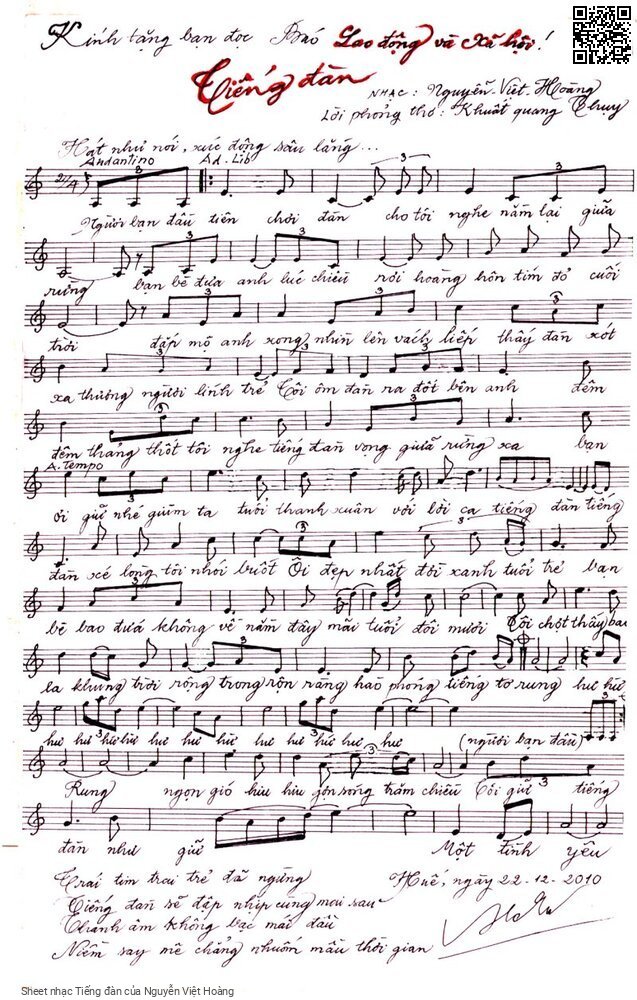 Kính tặng bạn đọc Báo Lao động và Xã hội!
Tiếng đàn
NHẠC: Nguyễn Việt Hoàng
Lời phỏng thơ: Khuất quang Thụy
Hát như nói, xúc động sâu lắng...
Andantino Ad. Lib
2/4
Người bạn đầu tiên chơi đàn cho tôi nghe nằm lại giữa
rừng bạn bè đưa anh lúc chiều rơi hoàng hôn tím đỏ cuối
trời đắp mộ anh xong nhìn lên vách liếp thấy đàn xót
xa thương người lính trẻ Tôi ôm đàn ra đốt bên anh đêm
đêm thảng thốt tôi nghe tiếng đàn vọng giữa rừng xa bạn
A. Tempo
ơi giữ nhé giùm ta tuổi thanh xuân với lời ca tiếng đàn tiếng
đàn xé lòng tôi nhói buốt Ôi đẹp nhất đời xanh tuổi trẻ bạn
bè bao đứa không về nằm đây mãi tuổi đôi mươi Tôi chợt thấy bao
la khung trời rộng trong rộn ràng hào phóng tiếng tơ rung hư hư
hư hư hư hư hư hư hư hư hư hư hư hư (người bạn đầu)
Rừng ngọn gió hiu hiu dòng sông trăm chiều Tôi gửi tiếng
đàn như giữ Một tình yêu
Trái tim trai trẻ đã ngừng
Huế, ngày 22-12-2010
Tiếng đàn sẽ đập nhịp cùng mai sau
Thanh âm không bạc mái đầu
Niềm say mê chẳng nhuốm màu thời gian
Sheet nhạc Tiếng đàn của Nguyễn Việt Hoàng